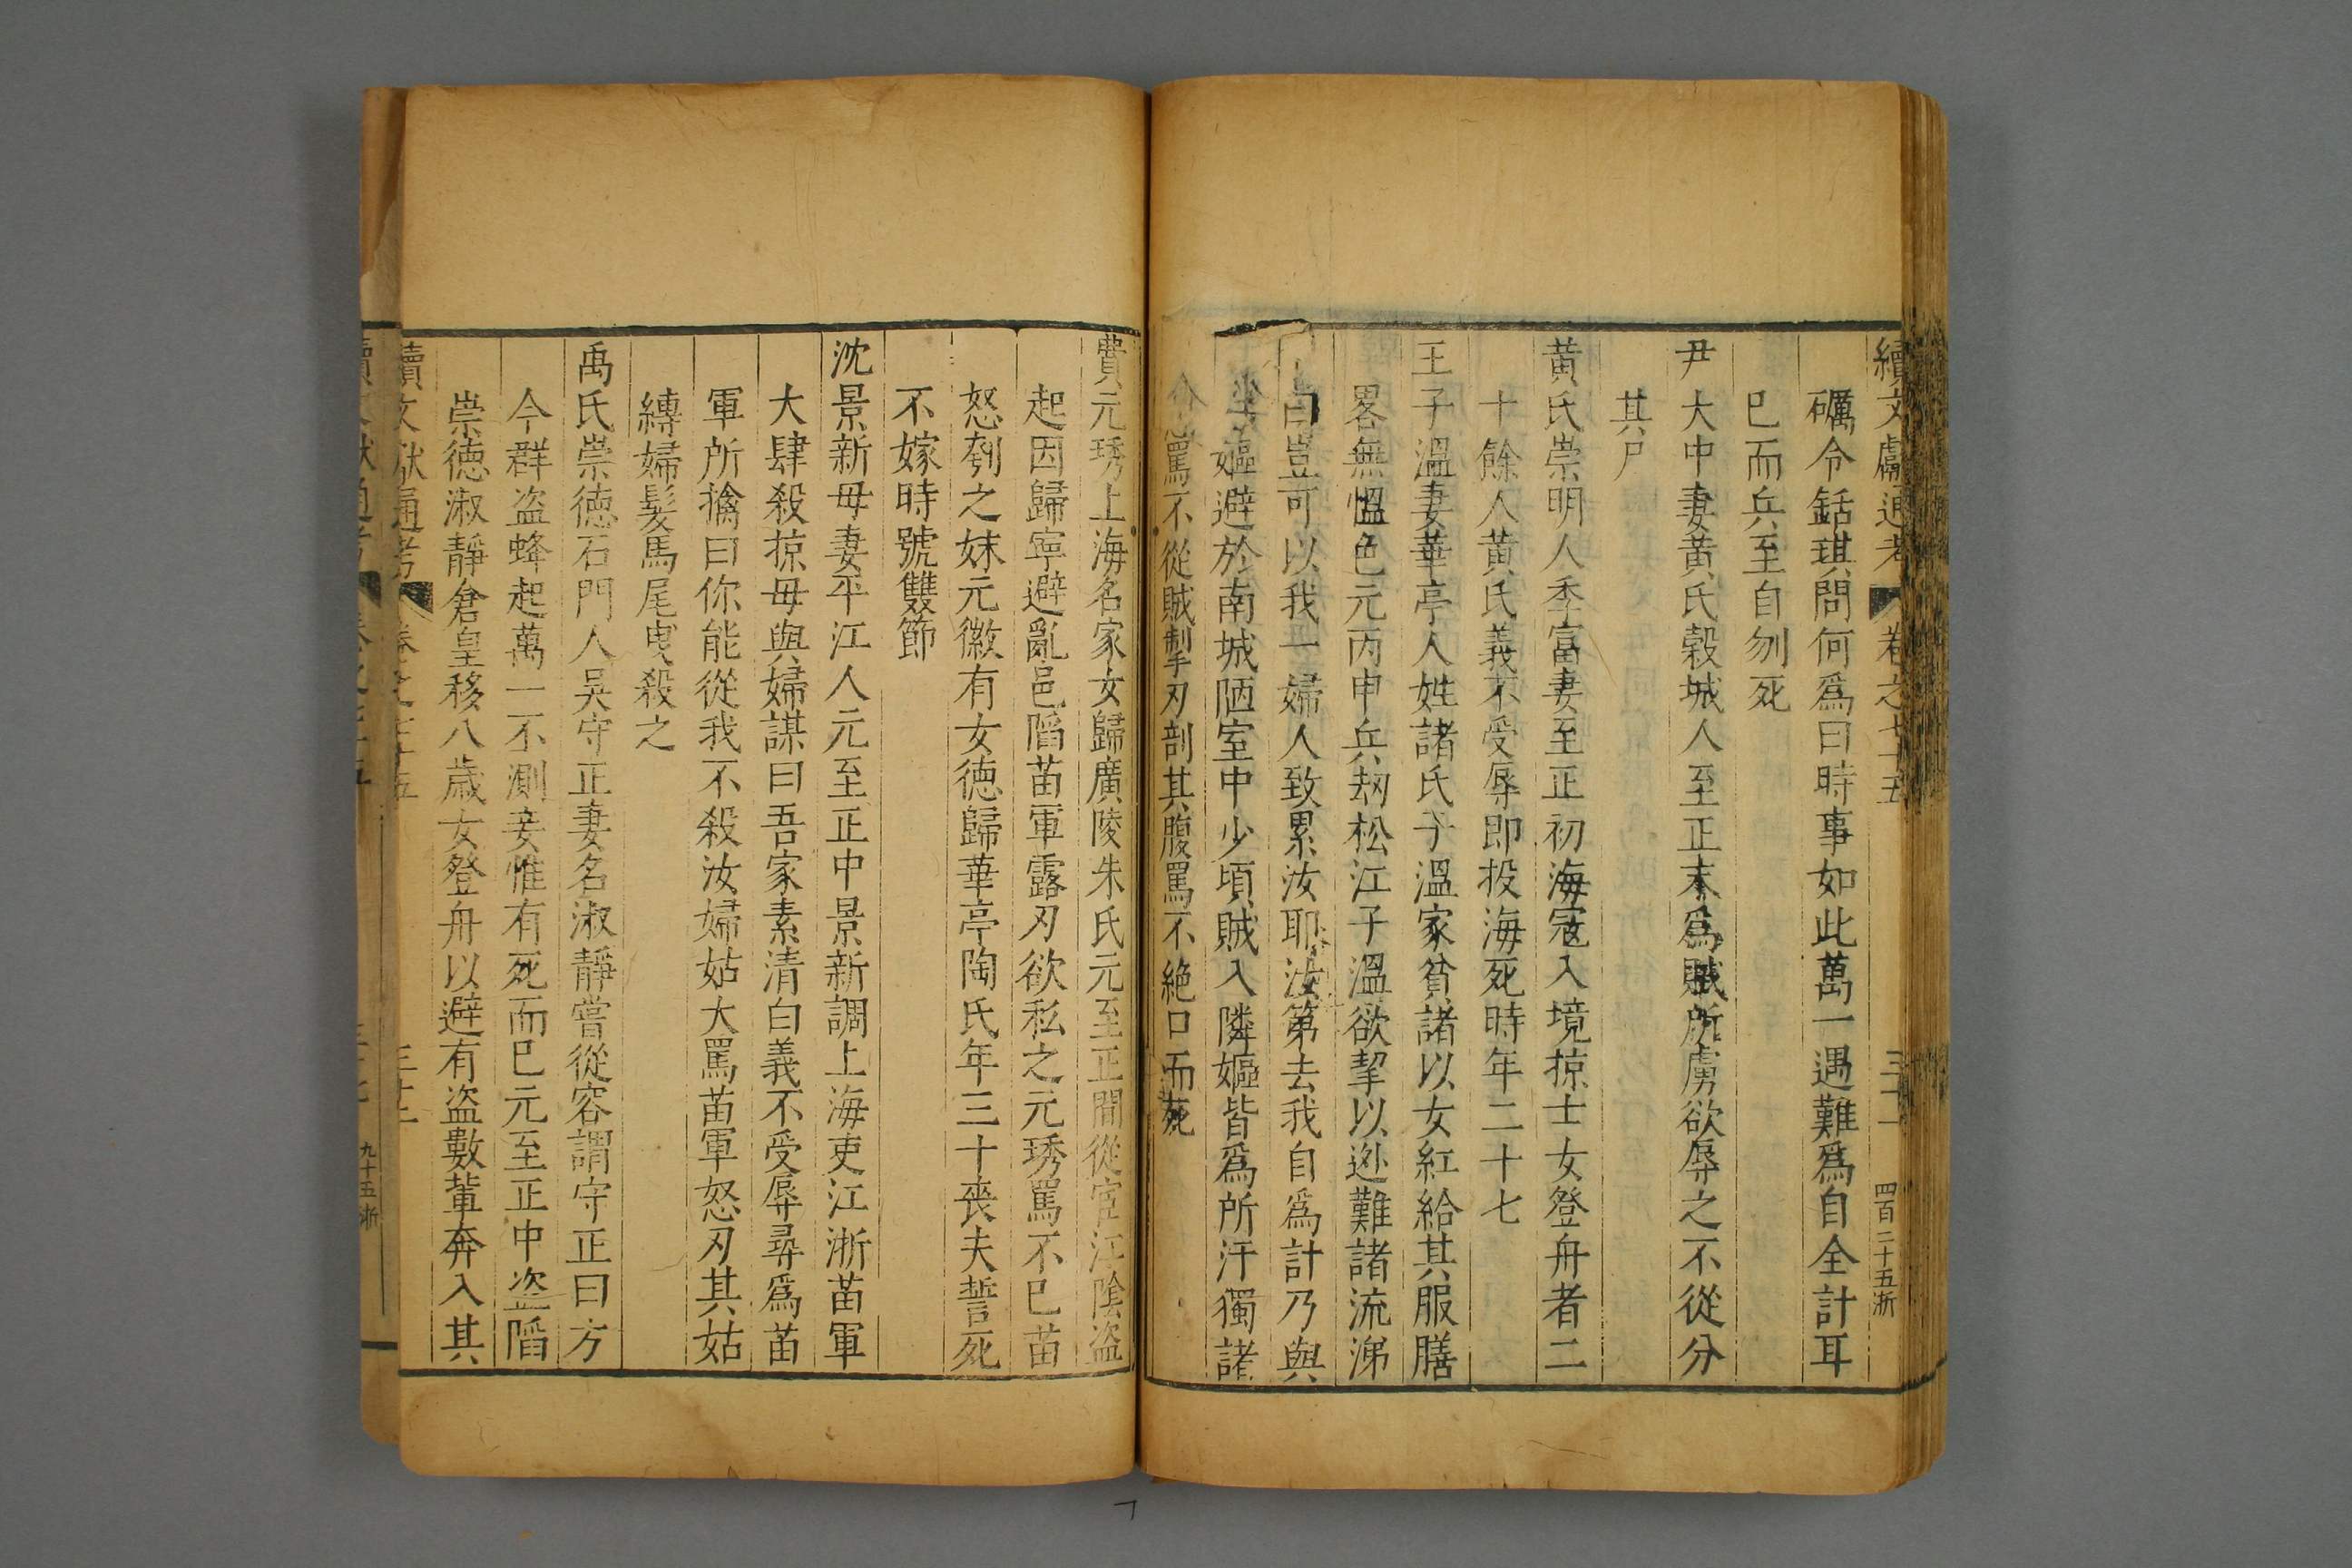 續文獻通考 卷之七十五 三十一 四百二十五浙
礪令銛琪問何爲曰時事如此萬一遇難爲自全計耳
巳而兵至自刎死
尹大中妻黃氏穀城人至正末爲賊所虜欲辱之不從分
其尸
黃氏崇明人季富妻至正初海寇入境掠士女登舟者二
十餘人黃氏義不受辱即投海死時年二十七
王子溫妻華亭人姓諸氏子溫家貧諸以女紅給其服膳
畧無慍色元丙申兵刼松江子溫欲挈以迯難諸流涕
曰豈可以我一婦人致累汝耶汝第去我自爲計乃與
嫗避於南城陋室中少頃賊入隣嫗皆爲所汙獨諸
罵不從賊掣刃剖其腹罵不絕口而死
費元琇上海名家女歸廣陵朱氏元至正間從宦江陰盗
起因歸寧避亂邑䧟苗軍露刃欲私之元琇罵不巳苗
怒刳之妹元徽有女德歸華亭陶氏年三十喪夫誓死
不嫁時號雙節
沈景新母妻平江人元至正中景新調上海吏江浙苗軍
大肆殺掠母與婦謀曰吾家素清白義不受辱尋爲苗
軍所擒曰你能從我不殺汝婦姑大罵苗軍怒刃其姑
縛婦髮馬尾曳殺之
禹氏崇德石門人吳守正妻名淑靜嘗從容謂守正曰方
今群盗蜂起萬一不測妾惟有死而巳元至正中盗䧟
崇德淑靜倉皇移八歲女登舟以避有盗數輩奔入其
續文獻通考 卷之七十五 三十二
九十五浙